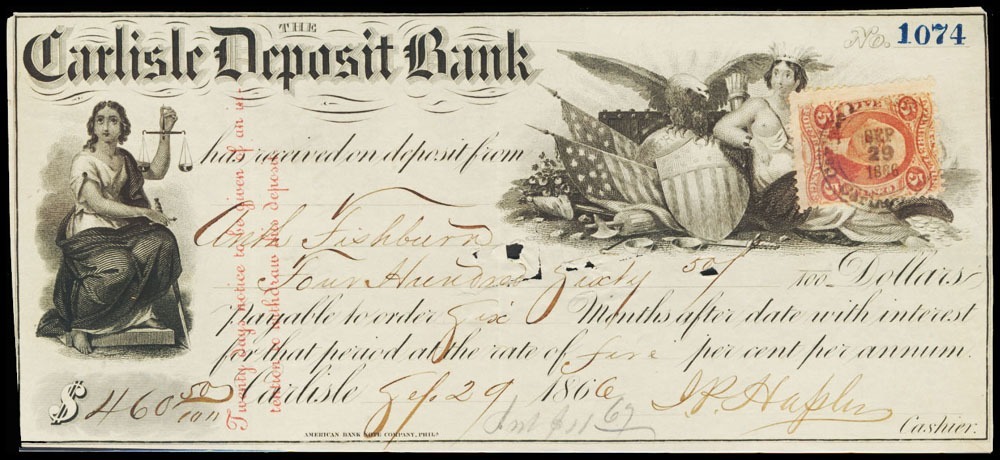 THE
No. 1074
Carlisle Deposit Bank
has received on deposit from
Fishburn
Four Hundred Sixty 50/
100 Dollars
Payable to order Six Months after date with interest
for that period at the rate of five per cent per annum.
$ 460 50/100 Carlisle Sep. 29 1866
Cashier.
AMERICAN BANK NOTE COMPANY, PHILA
Twenty days notice to be given of an in-
tention to withdraw this deposit
5
FIVE
5
SEP
29
1866
5
5